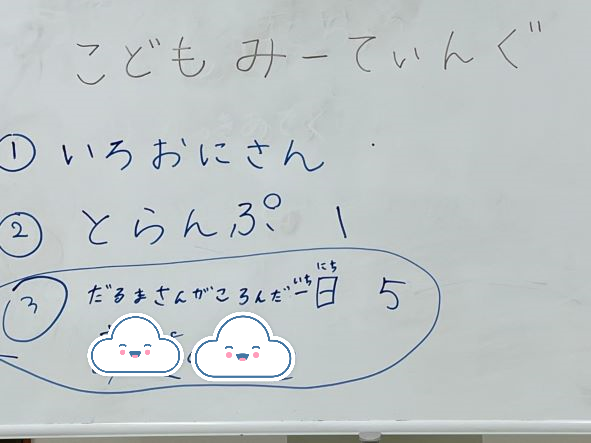 こどもみーてぃんぐ
① いろおにさん
② とらんぷ 1
③ だるまさんがころんだ一日 5
いち にち